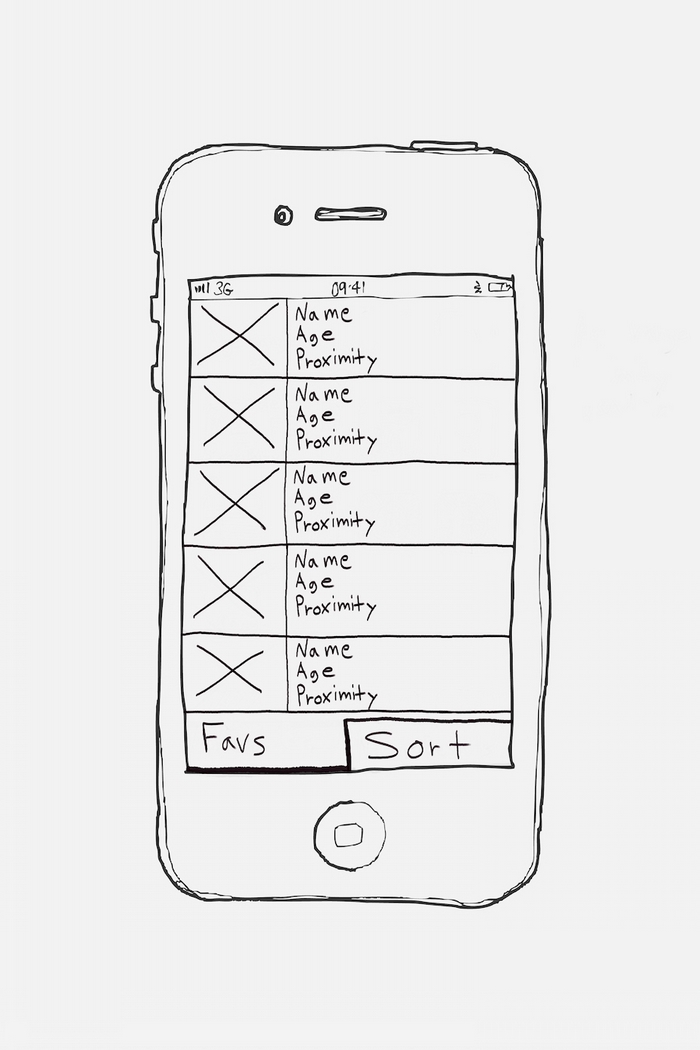 3G 09:41
Name
Age
Proximity
Name
Age
Proximity
Name
Age
Proximity
Name
Age
Proximity
Name
Age
Proximity
Favs Sort